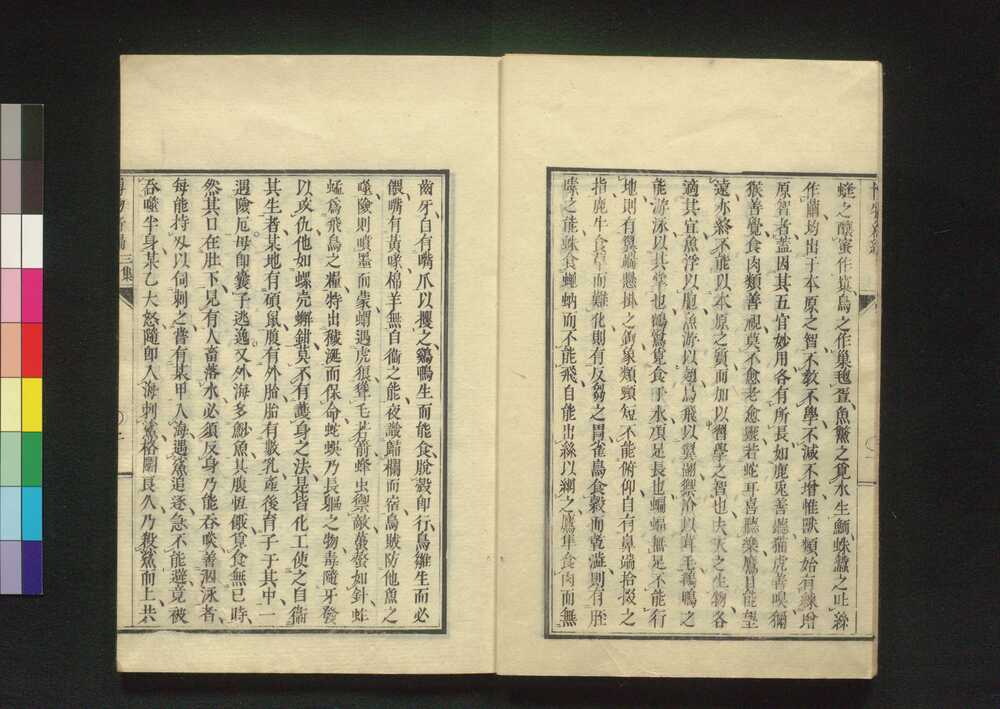 蜂之釀蜜作窠鳥之作巢毬蛋魚鱉之覓水生蜘蛛蠶之吐絲
作繭均出于本原之智不教不學不減不增惟獸類始有練增
原智者蓋因其五官妙用各有所長如鹿兎善聽猫虎善嗅獼
猴善覺食肉類善視莫不愈老愈靈若蛇耳喜聽樂鷹目能望
遠亦終不能以本原之質而加以習學之智也夫天之生物各
適其宜魚浮以胞魚游以翅鳥飛以翼溯禦冷以茸毛鵝鴨之
能游泳以其掌也鶴鷺覓食于水項足長也蝙蝠無足不能行
地則有翼鈎懸掛之鉤象類頸短不能俯仰自有鼻端拾掇之
指鹿牛食草而難化則有反芻之胃雀鳥食穀而乾澁則有胵
嗉之能蛛食蠅蚋而不能飛自能出絲以網之鷹隼食肉而無
齒牙自有嘴爪以攫之鷄鴨生而能食脫殼卽行鳥雛生而必
餵嘴有黄嗉棉羊無自衞之能夜識歸欄而宿烏賊防他魚之
噬險則噴墨而蒙蝟遇虎狼聳毛若箭蜂虫禦敵蠆螫如針蛙
蜢爲飛鳥之糧特出穢涎而保命蛇蜈乃長軀之物毒隨牙發
以攻仇他如螺壳蠏鉗莫不有護身之法是皆化工使之自衞
其生者某地有碩鼠腹有外胎胎有數乳產後育子于其中一
遇險厄母卽囊子逃逸又外海多魦魚其腹恆餓覓食無已時
然其口在肚下見有人畜落水必須反身乃能吞啖善泅泳者
每能持刄以伺刺之嘗有某甲入海遇鯊追逐急不能避竟被
吞噬半身某乙大怒隨卽入海刺鯊格鬬良久乃殺鯊而上共
博物新編 三集